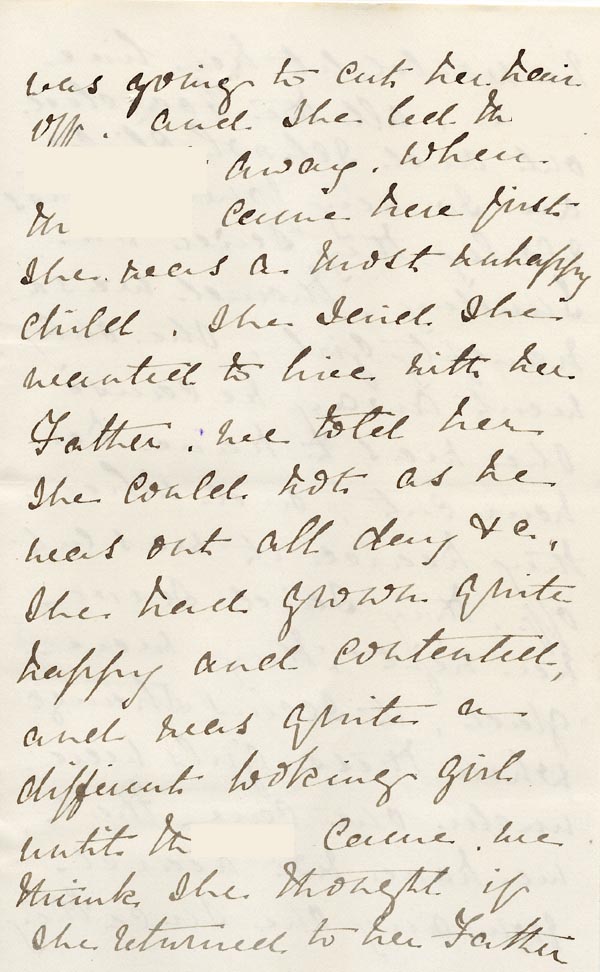 was going to cut her hair
off. and she led th
away. When
th came here first
she was a most unhappy
child. She said she
wanted to live with her
Father. we told her
she could not as he
was out all day &c.,
she had grown quite
happy and contented,
and was quite a
different looking girl
until th came. we
think she thought if
she returned to her Father